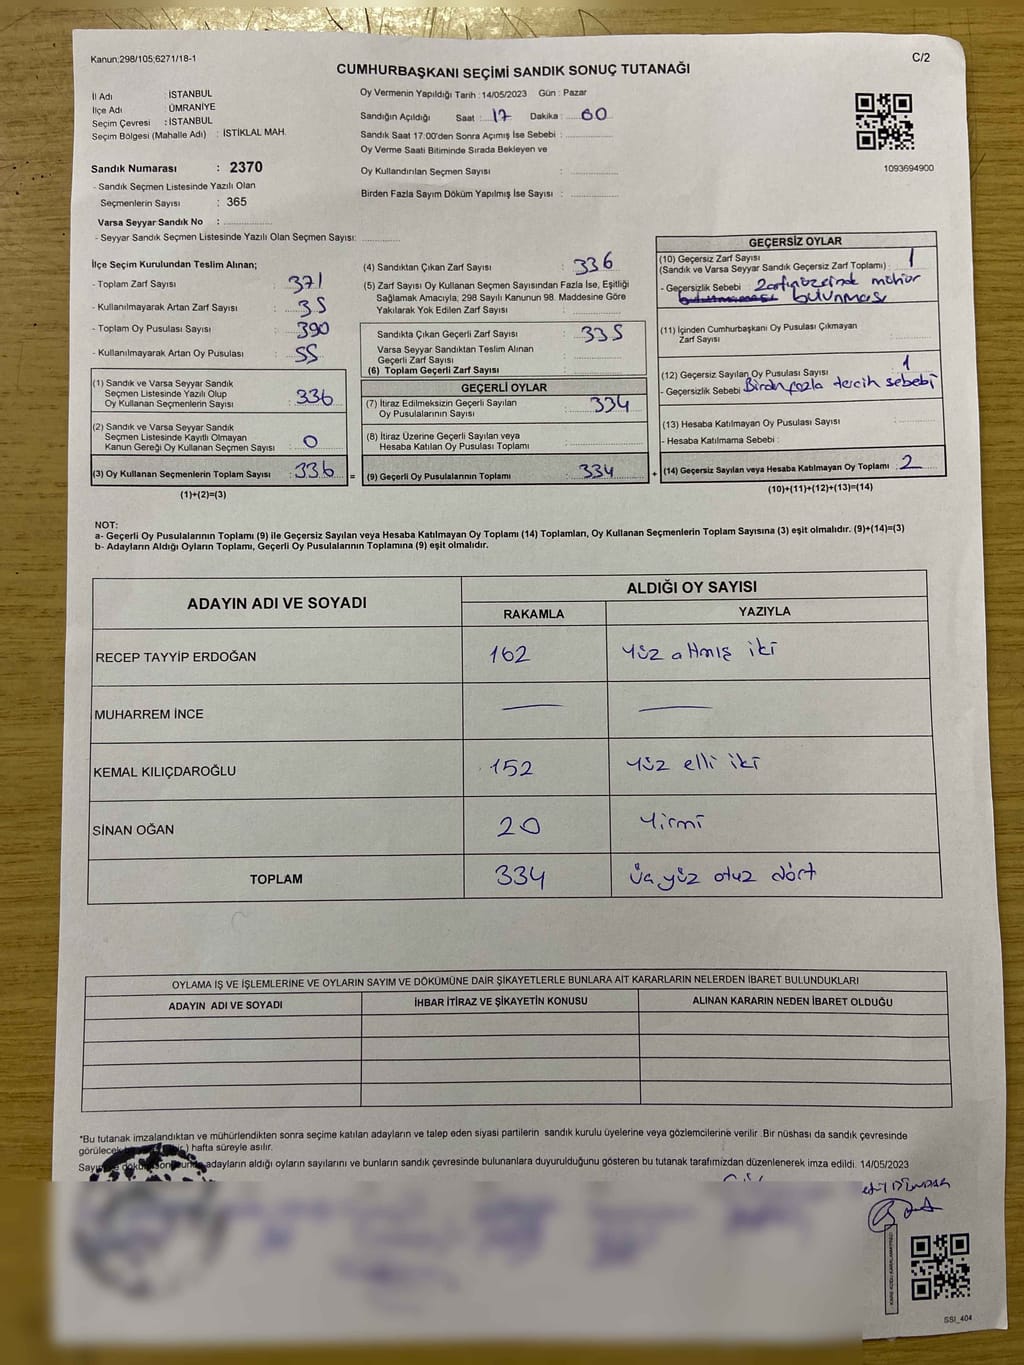 Kanun:298/105;6271/18-1
C/2
CUMHURBAŞKANI SEÇİMİ SANDIK SONUÇ TUTANAĞI
İl Adı : İSTANBUL
İlçe Adı : ÜMRANİYE
Seçim Çevresi : İSTANBUL
Seçim Bölgesi (Mahalle Adı) : İSTİKLAL MAH.
Sandık Numarası : 2370
- Sandık Seçmen Listesinde Yazılı Olan
Seçmenlerin Sayısı : 365
Varsa Seyyar Sandık No :
- Seyyar Sandık Seçmen Listesinde Yazılı Olan Seçmen Sayısı:
Oy Vermenin Yapıldığı Tarih : 14/05/2023 Gün : Pazar
Sandığın Açıldığı Saat : 17 Dakika : 00
Sandık Saat 17:00'den Sonra Açımış İse Sebebi :
Oy Verme Saati Bitiminde Sırada Bekleyen ve
Oy Kullandırılan Seçmen Sayısı :
Birden Fazla Sayım Döküm Yapılmış İse Sayısı :
1093694900
İlçe Seçim Kurulundan Teslim Alınan;
- Toplam Zarf Sayısı : 371
- Kullanılmayarak Artan Zarf Sayısı : 35
- Toplam Oy Pusulası Sayısı : 390
- Kullanılmayarak Artan Oy Pusulası : 55
(1) Sandık ve Varsa Seyyar Sandık
Seçmen Listesinde Yazılı Olup
Oy Kullanan Seçmenlerin Sayısı : 336
(2) Sandık ve Varsa Seyyar Sandık
Seçmen Listesinde Kayıtlı Olmayan
Kanun Gereği Oy Kullanan Seçmen Sayısı : 0
(3) Oy Kullanan Seçmenlerin Toplam Sayısı : 336 =
(1)+(2)=(3)
(4) Sandıktan Çıkan Zarf Sayısı : 336
(5) Zarf Sayısı Oy Kullanan Seçmen Sayısından Fazla İse, Eşitliği
Sağlamak Amacıyla; 298 Sayılı Kanunun 98. Maddesine Göre
Yakılarak Yok Edilen Zarf Sayısı :
Sandıkta Çıkan Geçerli Zarf Sayısı : 335
Varsa Seyyar Sandıktan Teslim Alınan
Geçerli Zarf Sayısı :
(6) Toplam Geçerli Zarf Sayısı :
GEÇERLİ OYLAR
(7) İtiraz Edilmeksizin Geçerli Sayılan
Oy Pusulalarının Sayısı : 334
(8) İtiraz Üzerine Geçerli Sayılan veya
Hesaba Katılan Oy Pusulası Toplamı :
(9) Geçerli Oy Pusulalarının Toplamı : 334 +
GEÇERSİZ OYLAR
(10) Geçersiz Zarf Sayısı
(Sandık ve Varsa Seyyar Sandık Geçersiz Zarf Toplamı) : 1
- Geçersizlik Sebebi : Zarf yüzeinde mühür
bulunması
(11) İçinden Cumhurbaşkanı Oy Pusulası Çıkmayan
Zarf Sayısı :
(12) Geçersiz Sayılan Oy Pusulası Sayısı : 1
- Geçersizlik Sebebi : Birden fazla tercih sebebi
(13) Hesaba Katılmayan Oy Pusulası Sayısı :
- Hesaba Katılmama Sebebi :
(14) Geçersiz Sayılan veya Hesaba Katılmayan Oy Toplamı : 2
(10)+(11)+(12)+(13)=(14)
NOT:
a- Geçerli Oy Pusulalarının Toplamı (9) ile Geçersiz Sayılan veya Hesaba Katılmayan Oy Toplamı (14) Toplamları, Oy Kullanan Seçmenlerin Toplam Sayısına (3) eşit olmalıdır. (9)+(14)=(3)
b- Adayların Aldığı Oyların Toplamı, Geçerli Oy Pusulalarının Toplamına (9) eşit olmalıdır.
ADAYIN ADI VE SOYADI
ALDIĞI OY SAYISI
RAKAMLA YAZIYLA
RECEP TAYYİP ERDOĞAN 162 Yüz altmış iki
MUHARREM İNCE — —
KEMAL KILIÇDAROĞLU 152 Yüz elli iki
SİNAN OĞAN 20 Yirmi
TOPLAM 334 Üçyüz otuz dört
OYLAMA İŞ VE İŞLEMLERİNE VE OYLARIN SAYIM VE DÖKÜMÜNE DAİR ŞİKAYETLERLE BUNLARA AİT KARARLARIN NELERDEN İBARET BULUNDUKLARI
ADAYIN ADI VE SOYADI İHBAR İTİRAZ VE ŞİKAYETİN KONUSU ALINAN KARARIN NEDEN İBARET OLDUĞU
*Bu tutanak imzalandıktan ve mühürlendikten sonra seçime katılan adayların ve talep eden siyasi partilerin sandık kurulu üyelerine veya gözlemcilerine verilir .Bir nüshası da sandık çevresinde
görülecek hafta süreyle asılır.
adayların aldığı oyların sayılarını ve bunların sandık çevresinde bulunanlara duyurulduğunu gösteren bu tutanak tarafımızdan düzenlenerek imza edildi. 14/05/2023
SSI_404